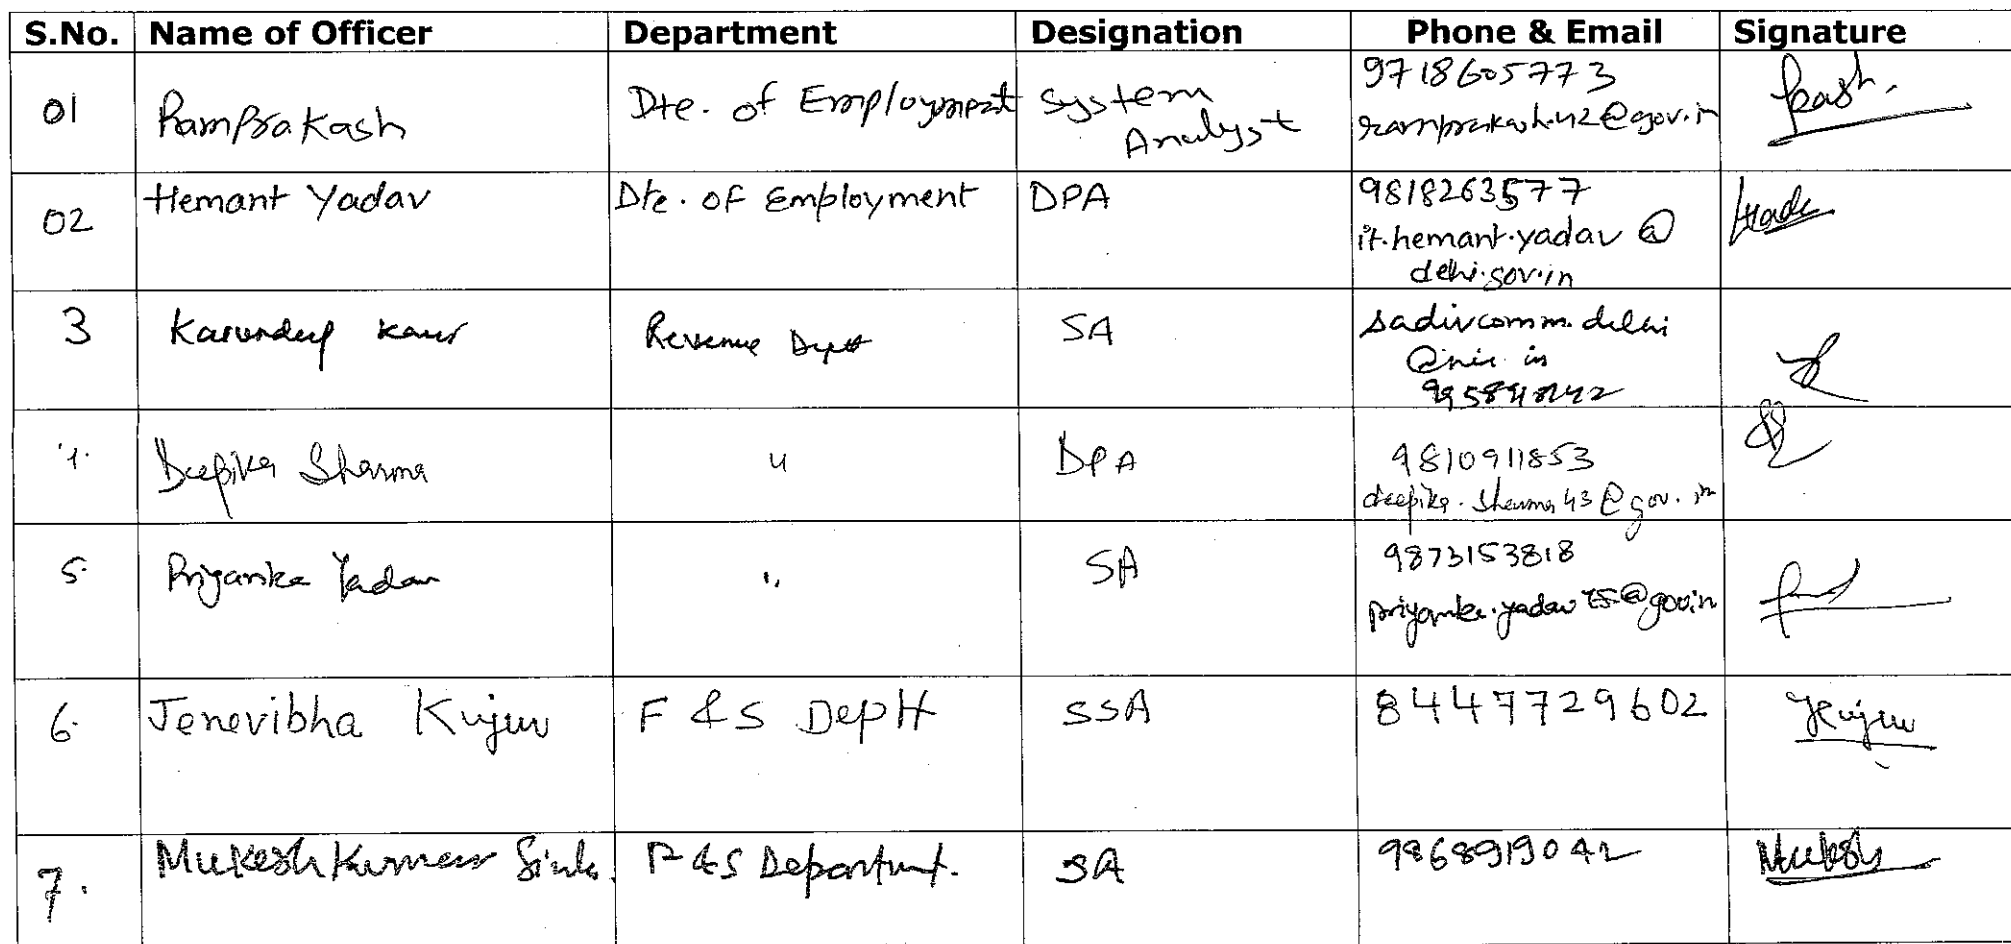 S.No. Name of Officer Department Designation Phone & Email Signature
01 RamPrakash Dte. of Employment System Analyst 9718605773
ramprakash.42@gov.in
02 Hemant Yadav Dte. of Employment DPA 9818263577
it.hemant.yadav @
delhi.gov.in
3 Karundeep Kaur Revenue Deptt SA sadivcomm.delhi
@nic.in
4. Deepika Sharma " DPA 9810911853
deepika.sharma43@gov.in
5. Priyanka Yadav " SA 9873153818
priyanka.yadav75@gov.in
6. Jenevibha Kujur F & S Deptt SSA 8447729602 Kujur
7. Mukesh Kumar F & S Department. SA 9868919042 Mukesh